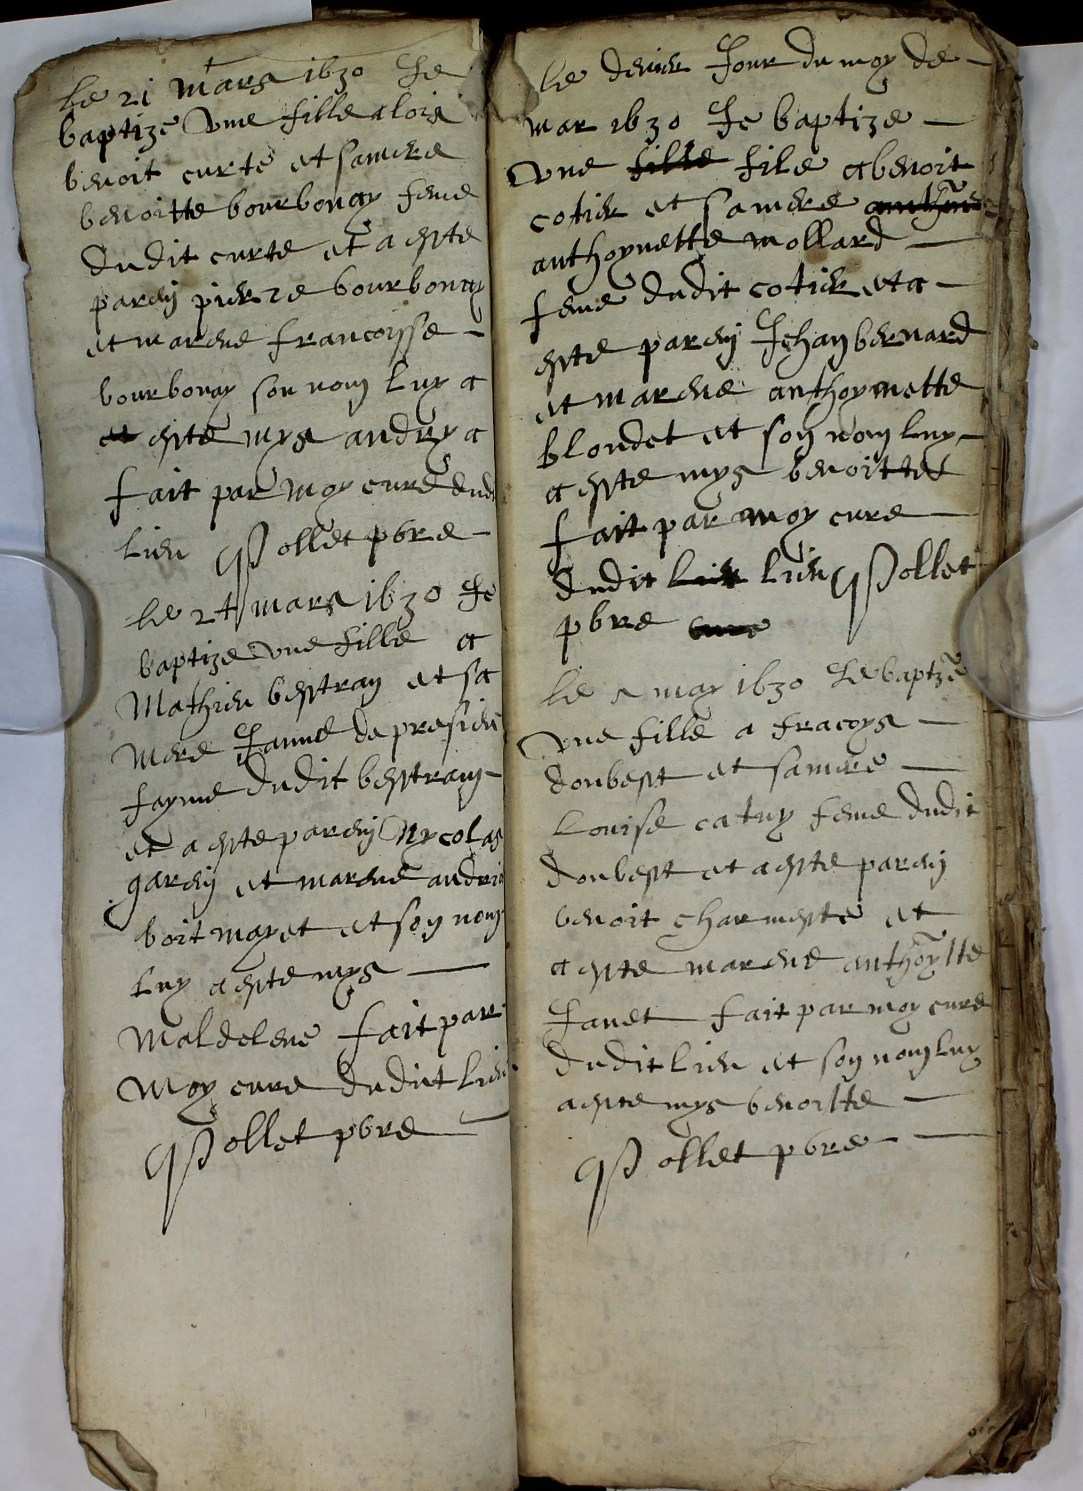 Le 21 mars 1630 Je
baptize une fille a lois
benoit curte et samere
benoitte bourbonay feme
dudit curte et a este
parein pierre bourbonay
et marene francoisse
bourbonay son nom luy a
este mys andry a
fait par moy cure dudi
lieu Pollet pbre
Le 24 mars 1630 Je
baptize une fille a
Mathieu bestray et sa
Mere Janne de presieu
fayme dudit bestray
et a este parein Nycolas
garein et marene andri
boit mayet et son nom
Luy a este mys
Maldelene fait par
Moy cure dudict lieu
Pollet pbre
Le denier Jour du moy de
mar 1630 Je baptize
une fille file a benoit
cotier et samere
anthoynette mollard
feme dudit cotier et a
este parein Jehan bernard
et marene anthoynette
blondet et son nom luy
a este mys benoitte
fait par moy cure
dudit lieu Pollet
pbre cure
Le may 1630 Je baptze
une fille a fracoys
doubest et samere
Louise catuy feme dudit
doubest et a este parein
benoit charmeste et
a este marene anthoytte
Janet fait par moy cure
dudit lieu et son nom luy
a este mys benoitte
Pollet pbre